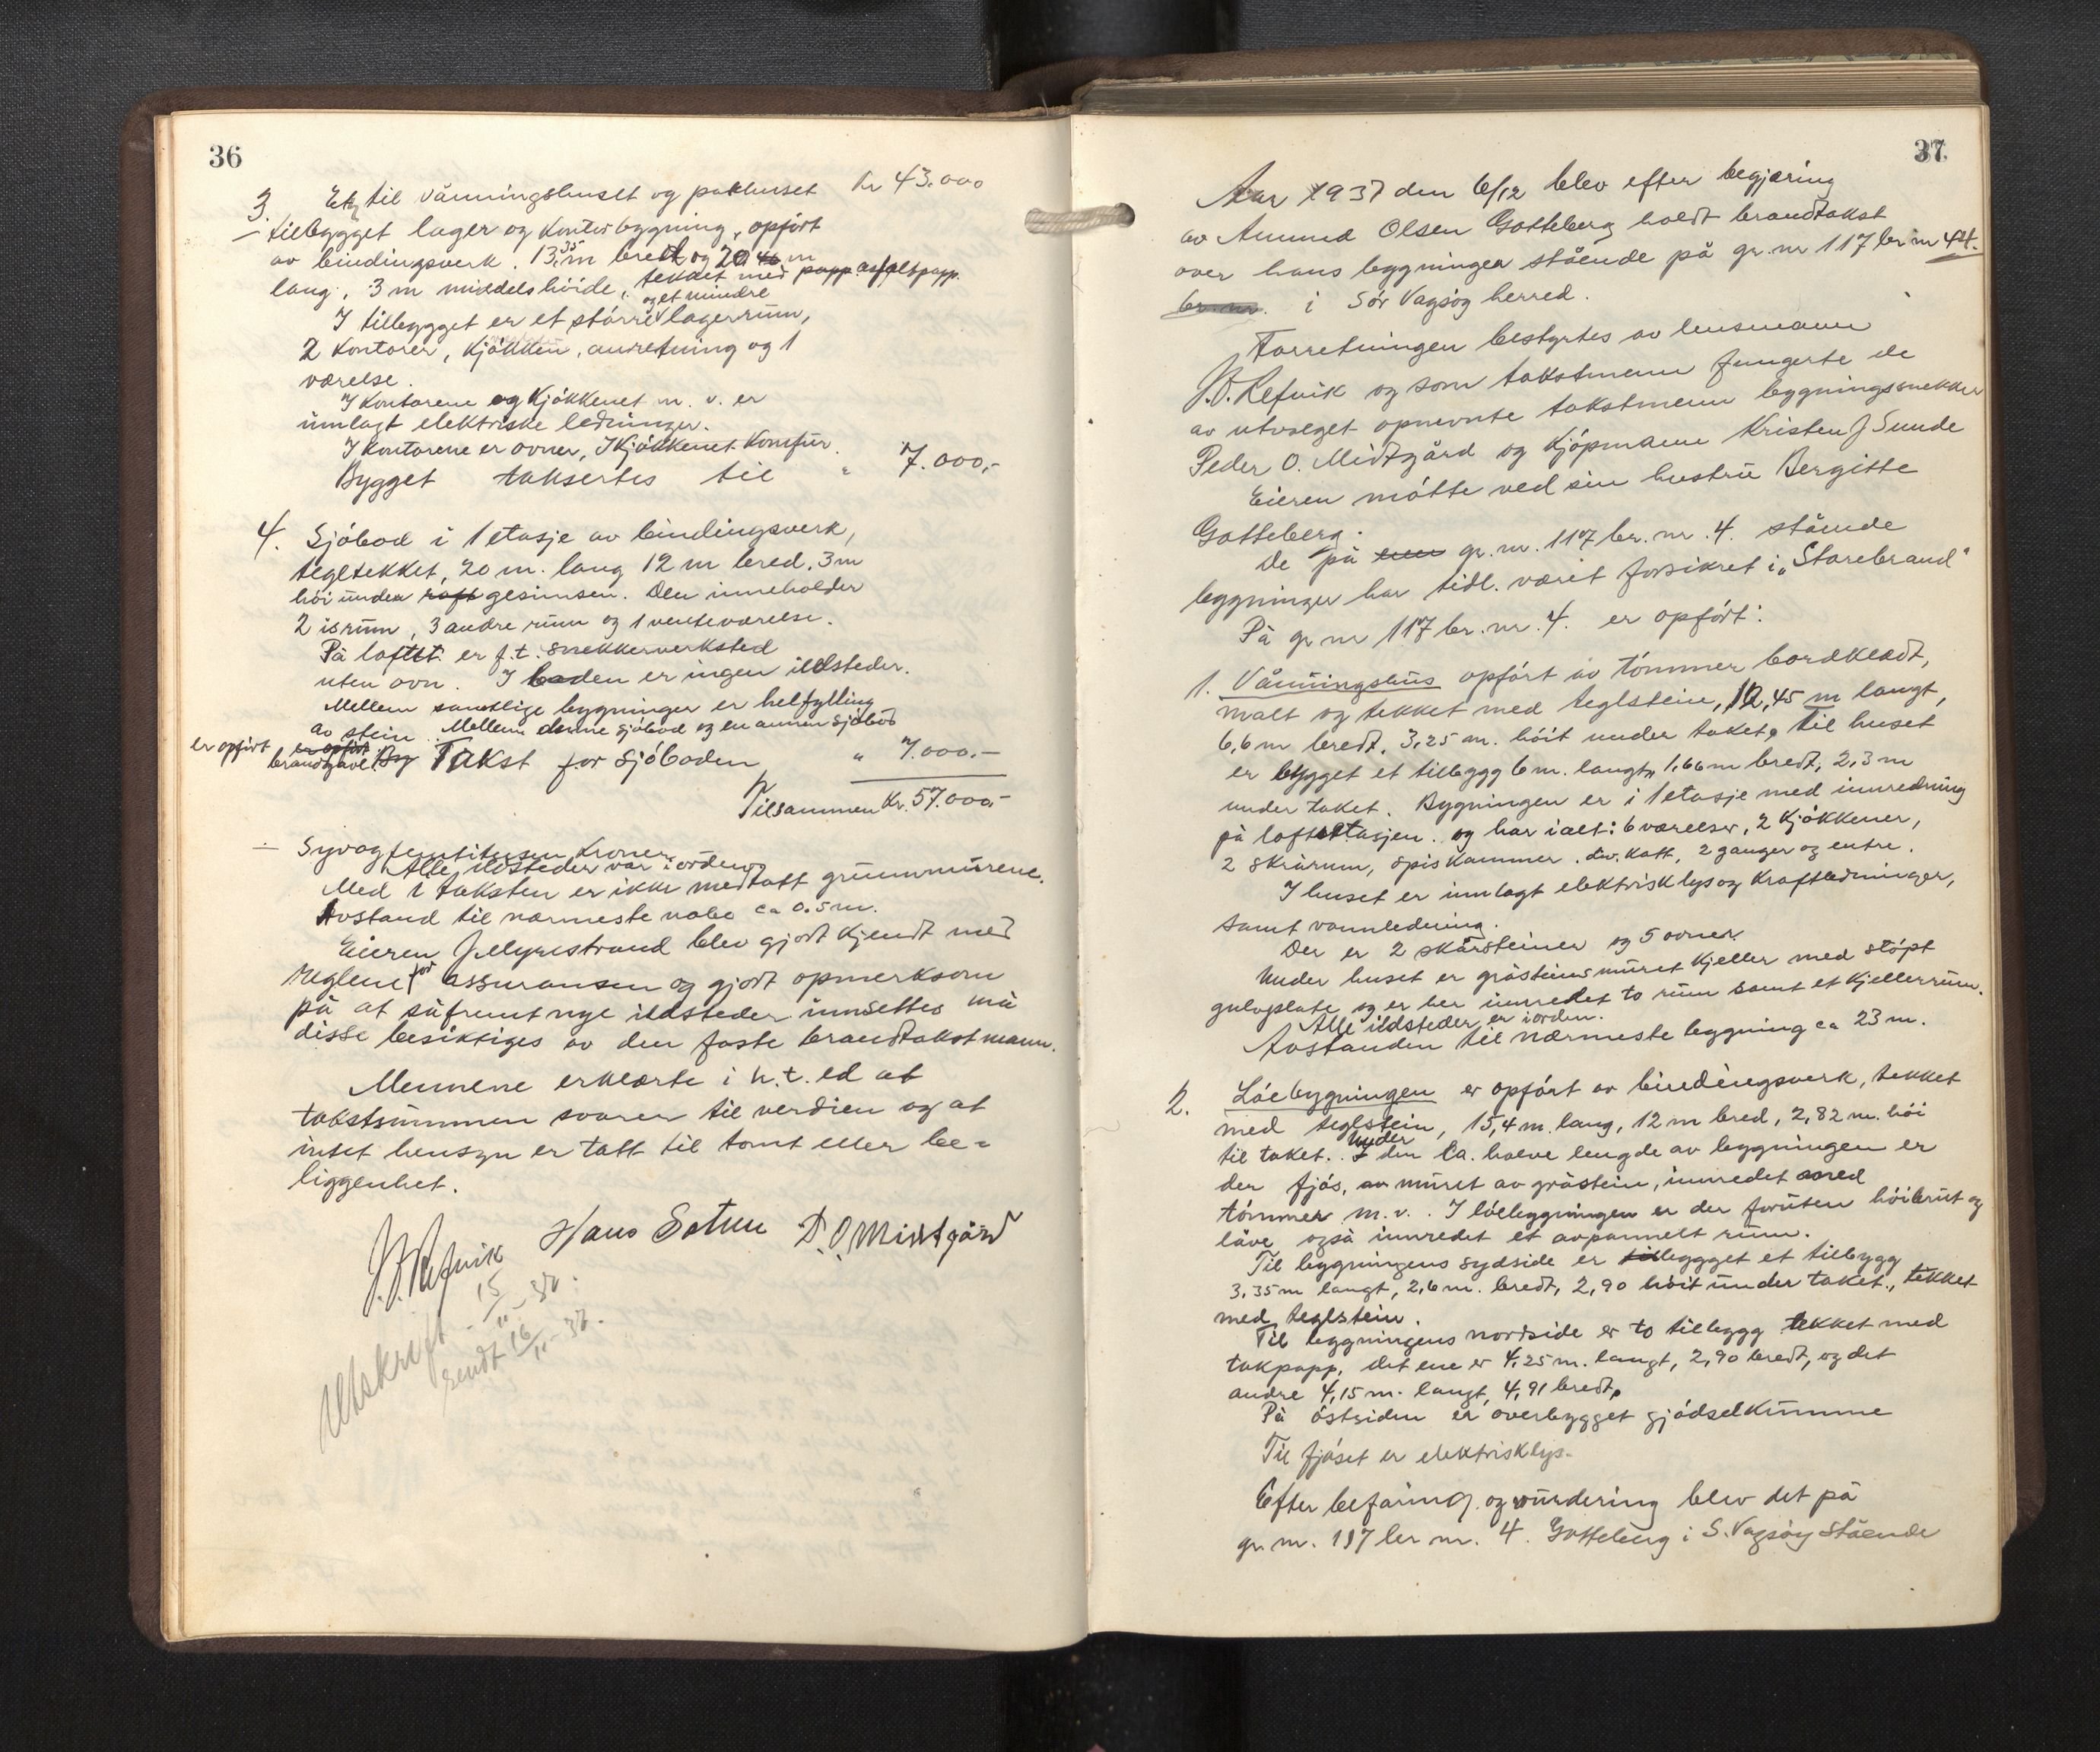 36
Et til våningshuset og pakhuset Kr 43.000
3. tilbygget lager og kontorbygning, opført
av bindingsverk. 13,35 m bredt og 20 m
lang, 3 m middelshöide, tekket med papp asfaltpapp.
I tilbygget er et större og et mindre lagerrum,
2 kontorer, kjökken, anretning og 1
værelse.
I kontorene og kjökkenet m. v. er
innlagt elektriske ledninger.
I kontorene er ovner, I kjökkenet komfur.
Bygget taksertes til " 7.000,-
4. Sjöbod i 1 etasje av bindingsverk,
tegltekket, 20 m. lang 12 m bred, 3 m
höi under raft gesimsen. Den inneholder
2 isrum, 3 andre rum og 1 venteværelse.
På loftet er f.t. snekkerverksted
uten ovn. I boden er ingen ildsteder.
Mellem samtlige bygninger er helfylling
av stein. Mellem denne sjöbod og en annen sjöbod
er opfört er opfört
brandgavl. Byg Takst for sjöboden " 7.000.-
Tilsammen Kr. 57.000,-
— Syvogfemtitusen kroner.
Alle ildsteder var i orden
Med i taksten er ikke medtatt grunnmurene.
Avstand til nærmeste nabo ca 0.5 m.
Eieren J. Myrestrand blev gjort kjendt med
reglene for assuransen og gjort opmerksom
på at såfremt nye ildsteder innsettes må
disse besiktiges av den faste brandtakstmann.
Mennene erklærte i h.t. ed at
takstsummen svarer til verdien og at
intet hensyn er tatt til tomt eller be-
liggenhet.
J. O. Refvik Hans Sætren P. O. Midtgård
Utskrift 15/11-37.
sendt 16/11-37.
37
Aar 1937 den 6/12 blev efter begjæring
av Amund Olsen Gotteberg holdt brandtakst
over hans bygninger stående på gr. nr 117 br nr 44.
br. nr. i Sör Vagsöy herred.
Forretningen bestyrtes av lensmann
J. O. Refvik og som takstmenn fungerte de
av utvalget opnevnte takstmenn bygningssnekker
Peder O. Midtgård og kjöpmann Kristen J Sunde
Eieren mötte ved sin hustru Bergitte
Gotteberg.
De på gr. nr. 117 br. nr. 4. stående
bygninger har tidl. været forsikret i "Storebrand"
På gr nr 117 br. nr. 4. er opfört:
1. Våningshus opfört av tömmer bordkledt,
malt og tekket med teglstein, 12,45 m langt,
6,6 m bredt, 3,25 m. höit under taket. Til huset
er bygget et tilbygg 6 m. langt, 1,66 m bredt, 2,3 m
under taket. Bygningen er i 1 etasje med innredning
på loftsetasjen. og har ialt: 6 værelser, 2 kjökkener,
2 skrårum, spiskammer. div. kott, 2 ganger og entre.
I huset er innlagt elektrisk lys og kraftledninger,
samt vannledning.
Der er 2 skårsteiner og 5 ovner.
Under huset er gråsteinsmuret kjeller med stöpt
gulvplate og er her innredet to rum samt et kjellerrum.
Alle ildsteder er i orden.
Avstanden til nærmeste bygning ca 23 m.
2. Löebygningen er opfört av bindingsverk, tekket
med teglstein, 15,4 m. lang, 12 m bred, 2,82 m. höi
til taket. I Under den ca. halve lengde av bygningen er
der fjös, av muret av gråstein, innredet med
tömmer m. v. . I löebygningen er der foruten höibrut og
låve også innredet et avpannelt rum.
Til bygningens sydside er tilbygget et tilbygg
3,35 m langt, 2,6 m. bredt, 2,90 höit under taket., tekket
med teglstein.
Til bygningens nordside er to tilbygg tekket med
takpapp, det ene er 4,25 m. langt, 2,90 bredt, og det
andre 4,15 m. langt, 4,91 bredt.
På östsiden er overbygget gjödselkumme
Til fjöset er elektrisk lys.
Efter befaring og vurdering blev det på
gr. nr. 117 br nr. 4. Gotteberg i S. Vagsöy stående